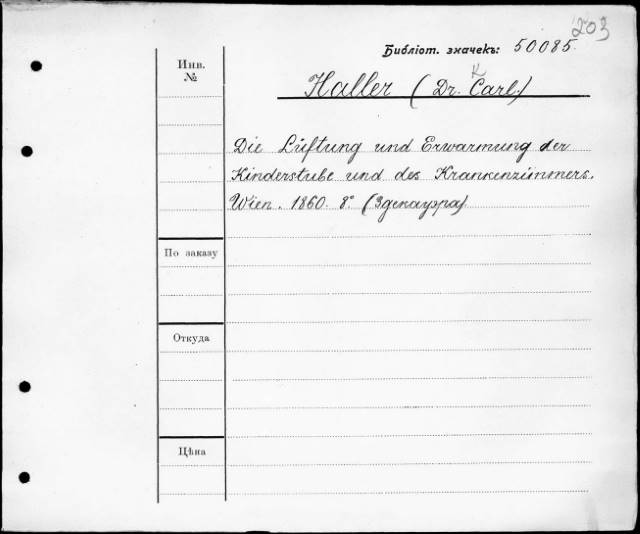 203
Библіот. значекъ: 50085.
Инв.
№
K
Haller (Dr. Carl.)
Die Lüftung und Erwarmung der
Kinderstube und des Krankenzimmers.
Wien. 1860. 8º. (3 експлра).
По заказу
Откуда
Цѣна